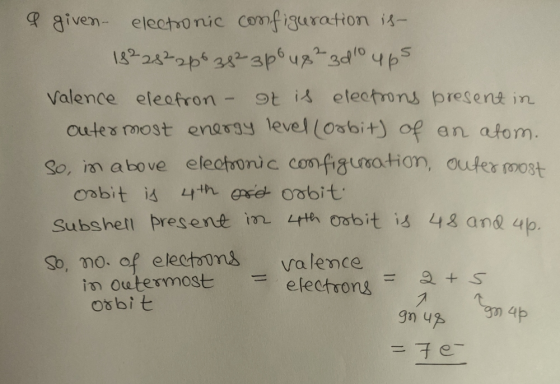 Q given- electronic configuration is-
1s² 2s² 2p⁶ 3s² 3p⁶ 4s² 3d¹⁰ 4p⁵
Valence electron - It is electrons present in
outermost energy level (orbit) of an atom.
So, in above electronic configuration, outermost
orbit is 4th orbit.
Subshell present in 4th orbit is 4s and 4p.
So, no. of electrons in outermost orbit = valence electrons = 2 + 5
In 4s In 4p
= 7 e⁻